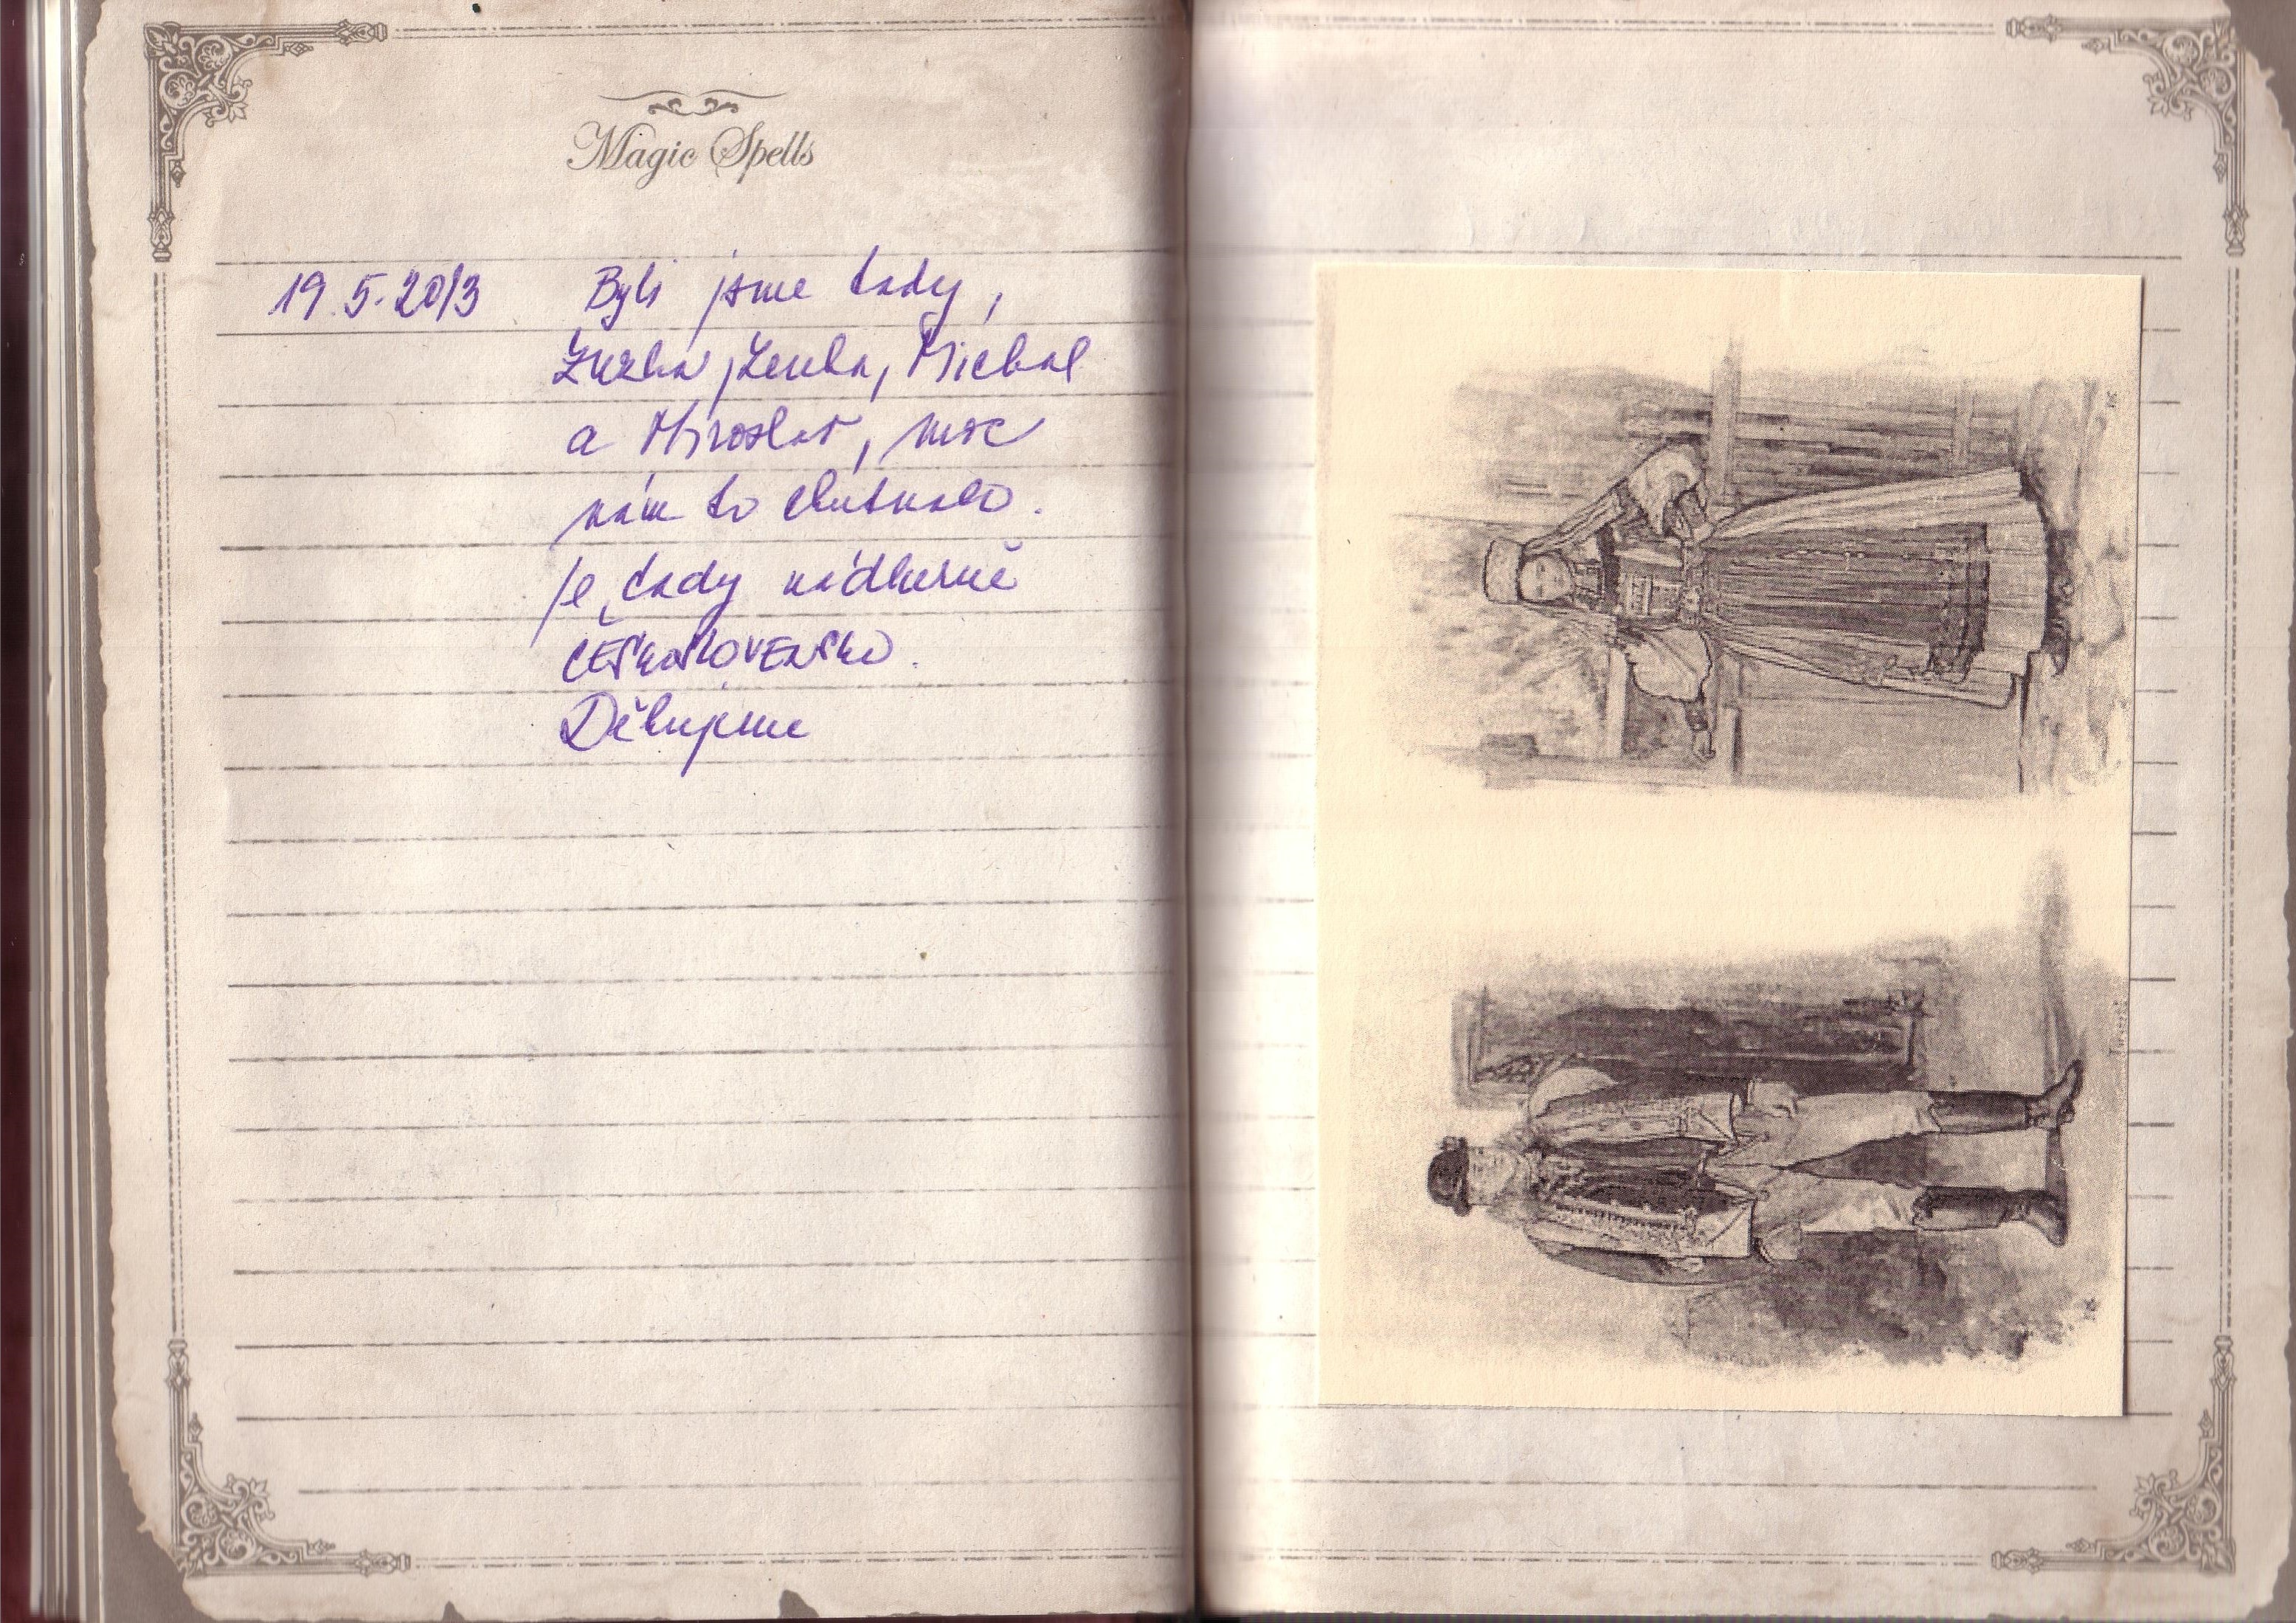 Magic Spells
19.5.2013 Byli jsme tady,
Zuzka, Lenka, Michal
a Miroslav, moc
nám to chutnalo.
Je tady nádherně
ČESkoSLOVENSko.
Děkujeme